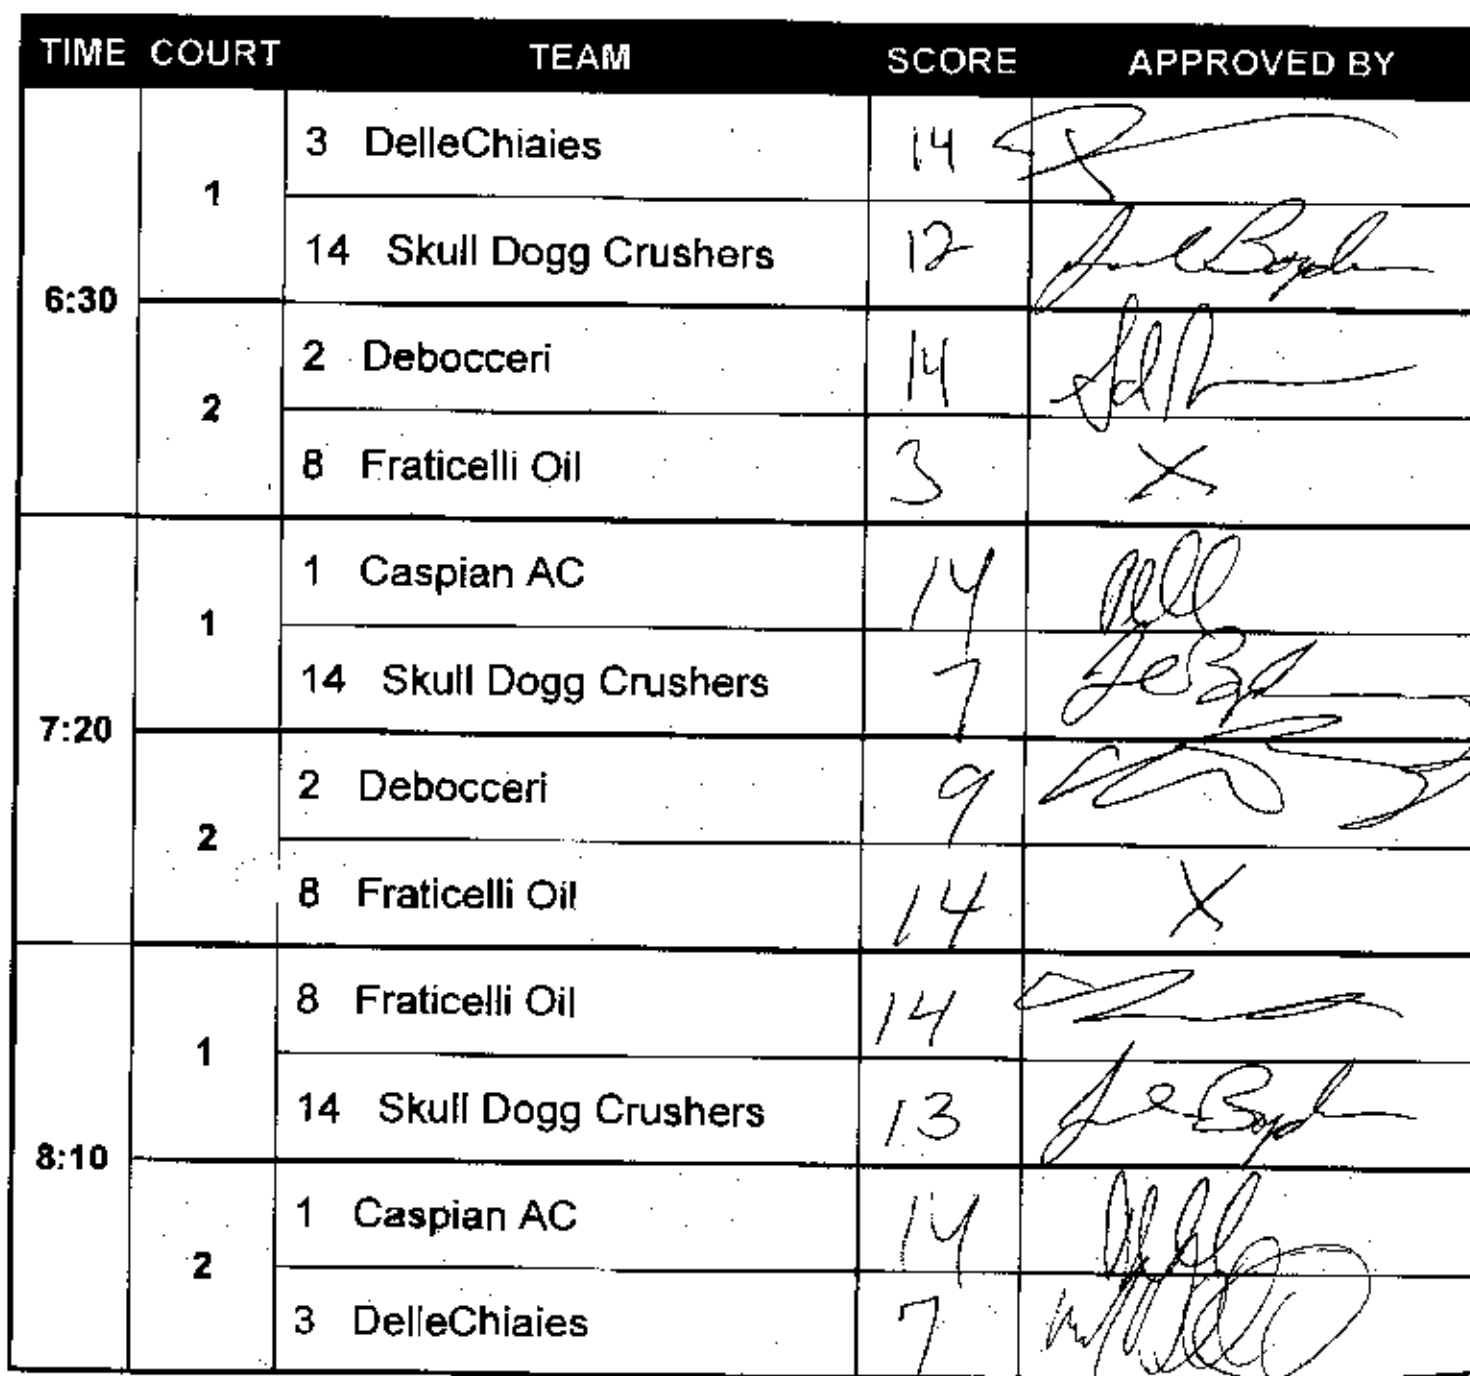 TIME COURT TEAM SCORE APPROVED BY
6:30
1
3 DelleChiaies 14
14 Skull Dogg Crushers 12
2
2 Debocceri 14
8 Fraticelli Oil 3 X
7:20
1
1 Caspian AC 14
14 Skull Dogg Crushers 7
2
2 Debocceri 9
8 Fraticelli Oil 14 X
8:10
1
8 Fraticelli Oil 14
14 Skull Dogg Crushers 13
2
1 Caspian AC 14
3 DelleChiaies 7